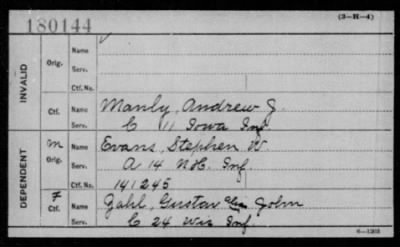 180144
(3-H-4)
INVALID
Orig.
Name
Serv.
Ctf. No.
Ctf.
Name Manly, Andrew J.
Serv. C 11 Iowa Inf.
DEPENDENT
m
Orig.
Name Evans, Stephen W.
Serv. A 14 N.H. Inf.
Ctf. No. 141245
F
Ctf.
Name Zahl, Gustav alias John
Serv. C 24 Wis Inf.